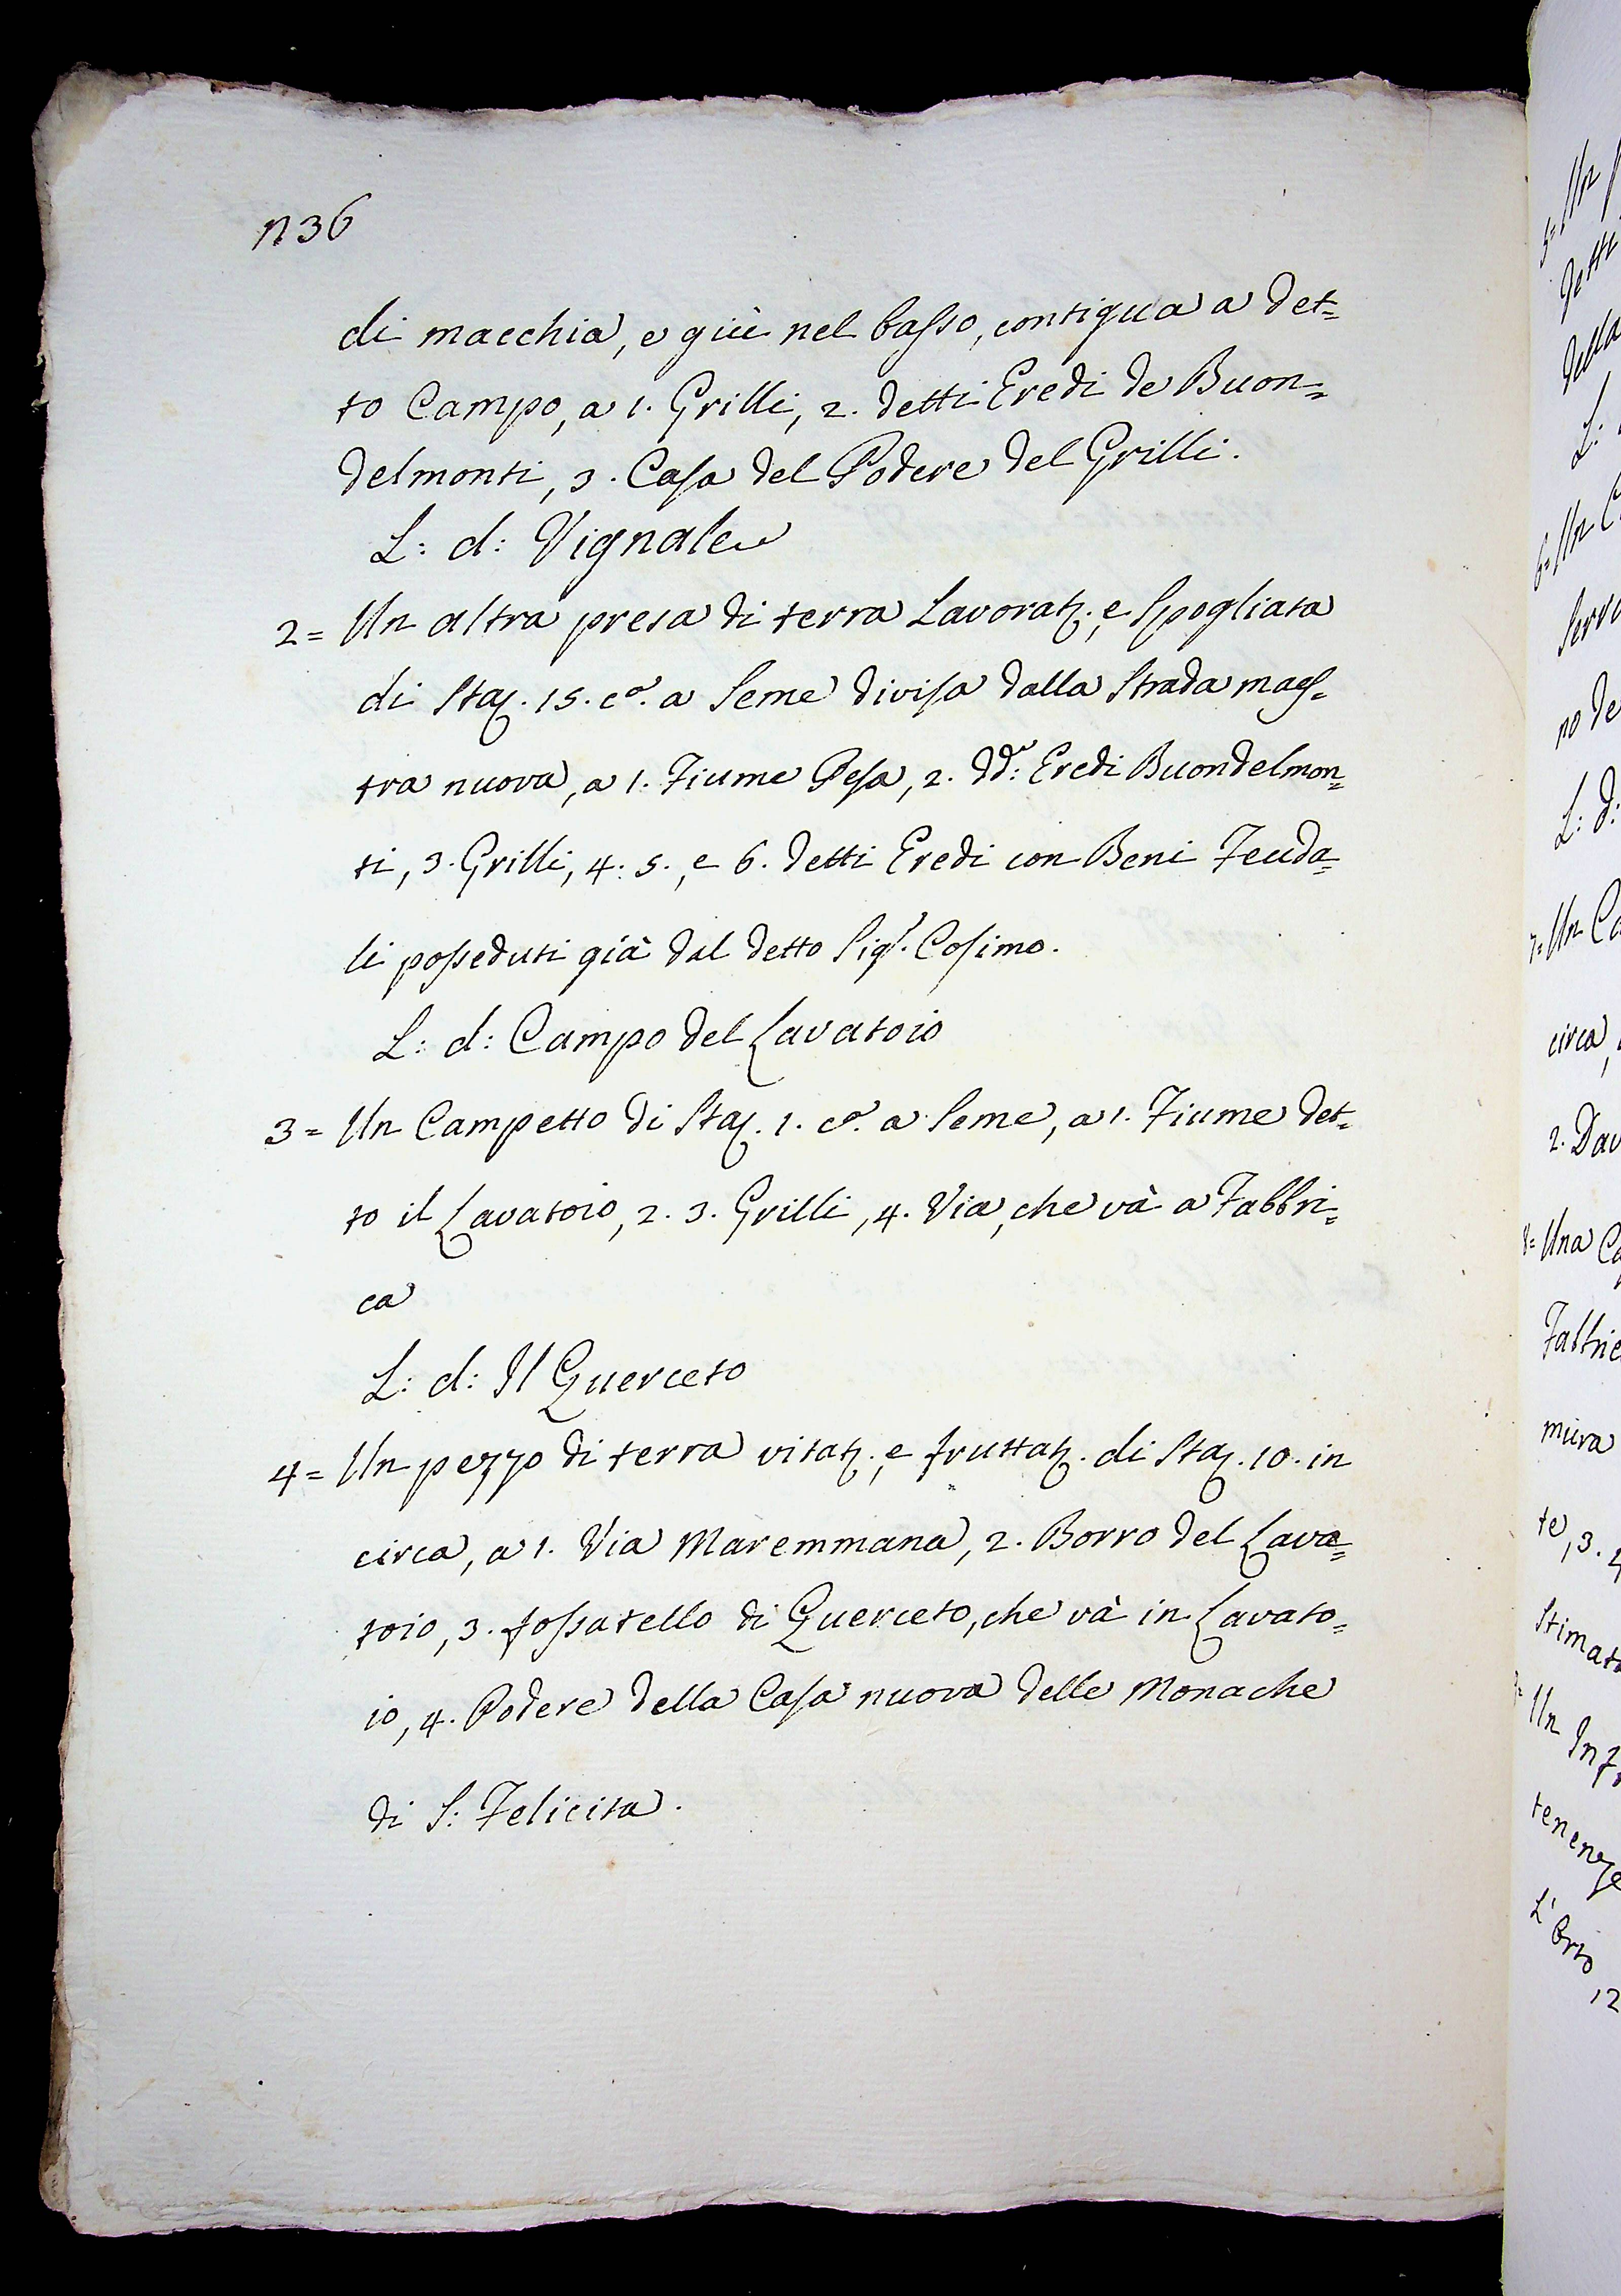 n 36
di macchia, e giù nel basso, contigua a det=
to Campo, a 1. Grilli, 2. detti Eredi de Buon=
delmonti, 3. Casa del Podere del Grilli.
L: d: Vignale
2= Un altra presa di terra Lavorat:, e Spogliata
di Sta: 15. c.ª a Seme divisa dalla Strada maes=
tra nuova, a 1. Fiume Pesa, 2. dd: Eredi Buondelmon=
ti, 3. Grilli, 4: 5., e 6. detti Eredi con Beni Feuda=
li posseduti già dal detto Sigr. Cosimo.
L: d: Campo del Lavatoio
3= Un Campetto di Sta: 1. c.ª a Seme, a 1. Fiume det=
to il Lavatoio, 2. 3. Grilli, 4. Via, che và a Fabbri=
ca
L: d: Il Querceto
4= Un pezzo di terra vitat:, e fruttat: di Sta: 10. in
circa, a 1. Via Maremmana, 2. Borro del Lava=
toio, 3. fossatello di Querceto, che và in Lavato=
io, 4. Podere della Casa nuova delle Monache
di S: Felicita.
5= Un
detti
della
L:
6= Un
no de
L: d:
7= Un Ca
circa,
2. Dav
8= Una Ca
Fabbric
mura
te, 3. 4
Stimat
Un
tenenze
L'Orto
12